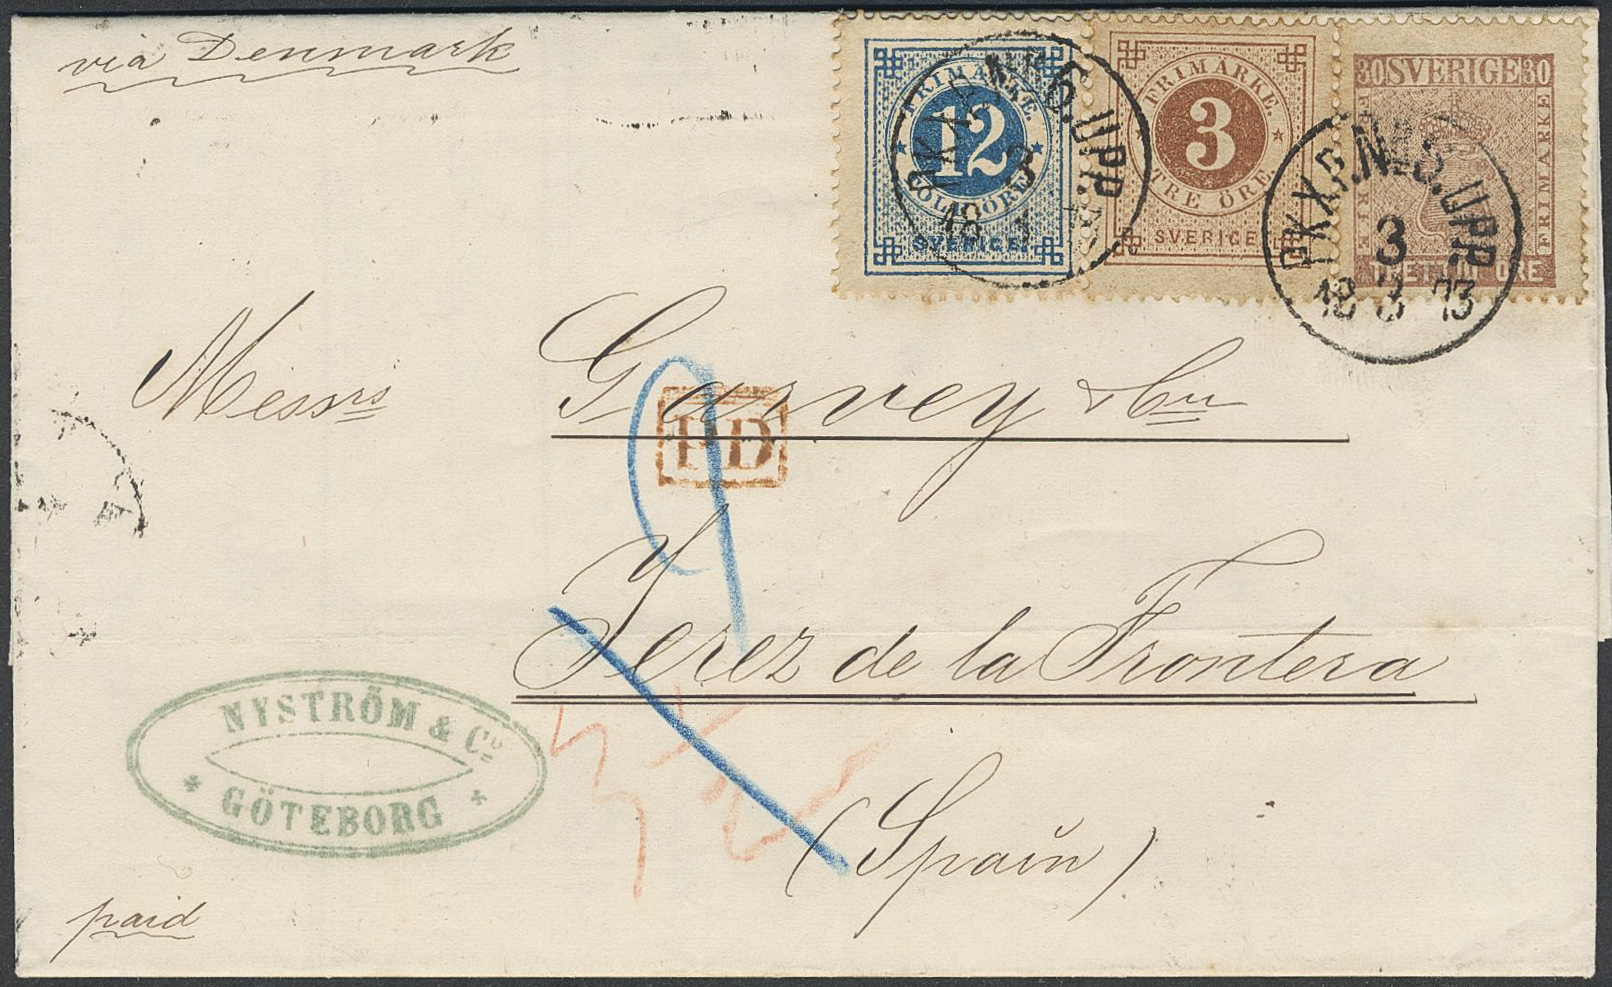 via Denmark
FRIMÄRKE.
12
TOLF ÖRE
SVERIGE.
FRIMÄRKE.
3
TRE ÖRE.
SVERIGE.
30 SVERIGE 30
FRIMÄRKE
TRETTIO ÖRE
PKXP. Nr 6. UPP
3
18 73
PKXP. Nr 6. UPP.
3
18 3 73
Messrs Garvey & Co
PD
9
Xerez de la Frontera
(Spain)
NYSTRÖM & Co
GÖTEBORG
paid